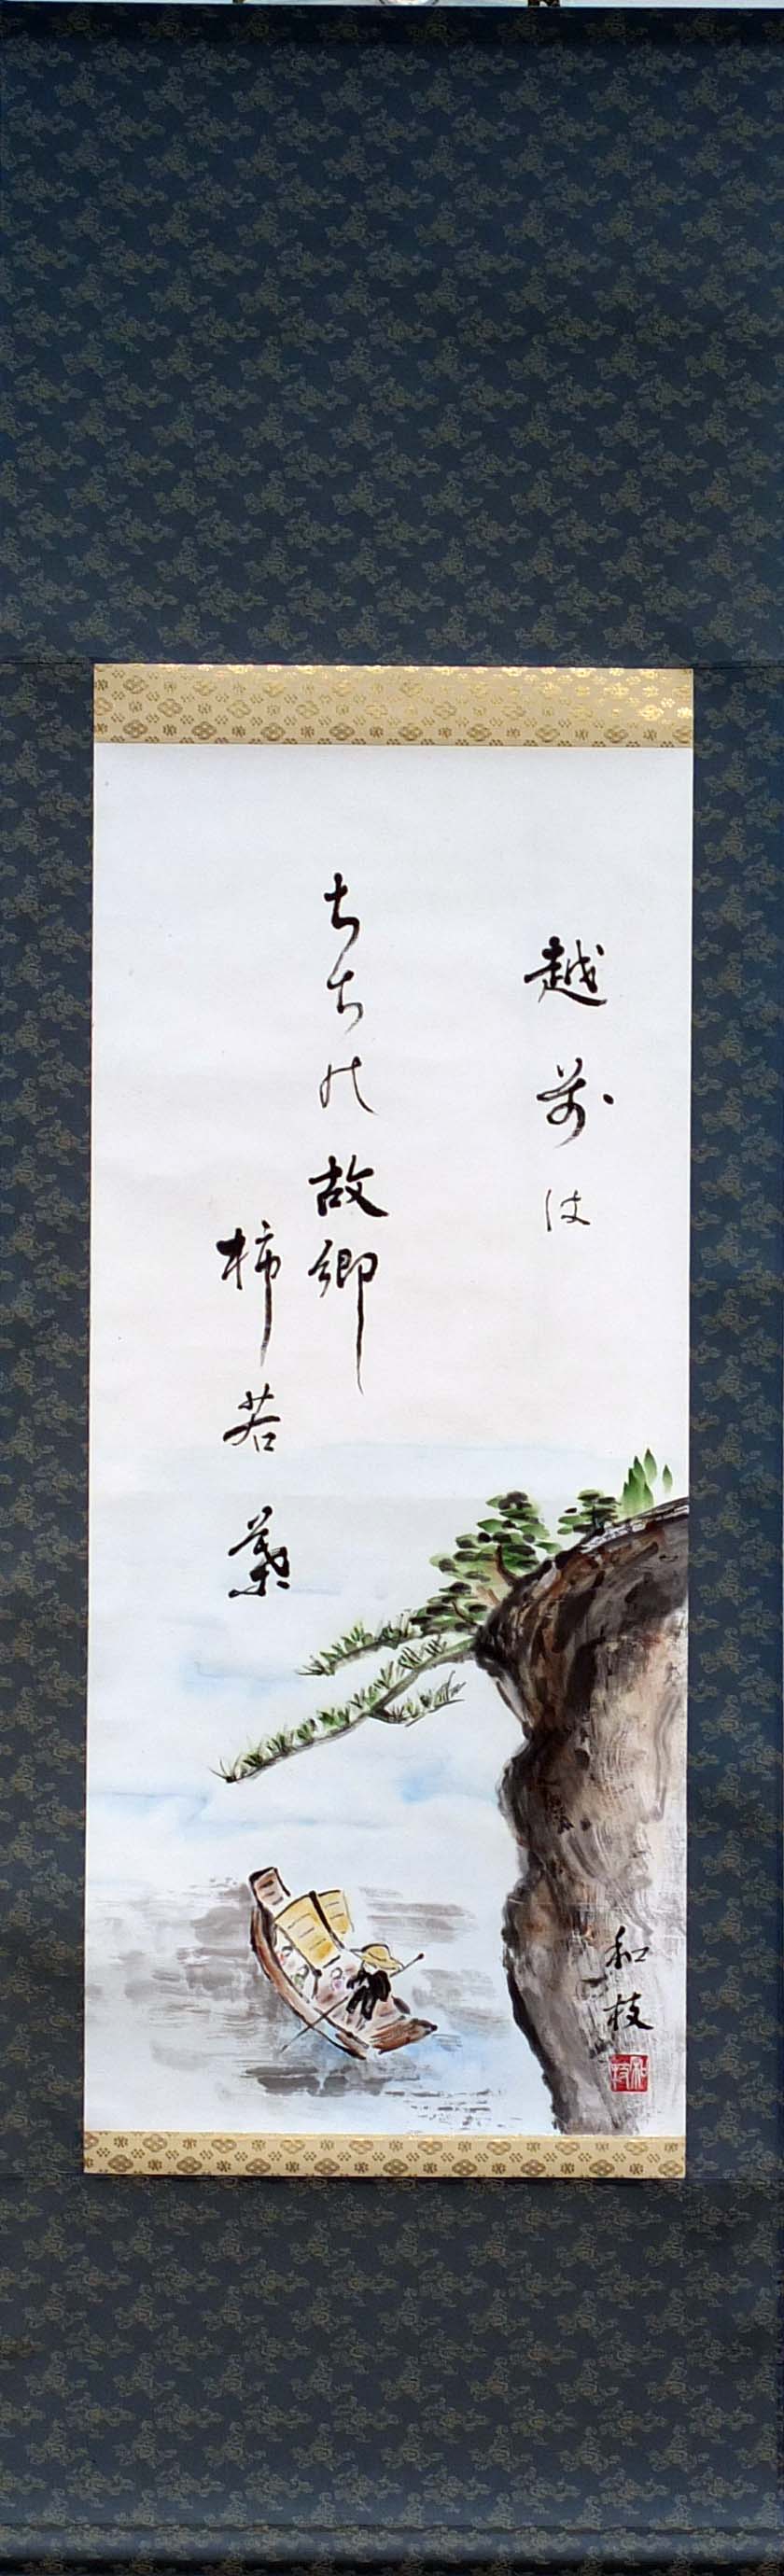 越前は
ちちの故郷
柿若葉
和枝
和枝